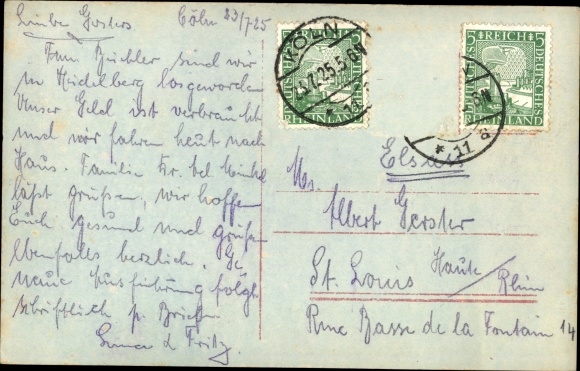 Cöln 23/7.25
Frau Büchler sind wir
in Heidelberg losgeworden
Unser Geld ist verbraucht
und wir fahren heut nach
Haus. Familie Kr. bei
läßt grüßen, wir hoffen
Euch gesund und grüßen
ebenfalls herzlich. Ge
naue Ausführung folgt
schriftlich p. Brief.
Fritz.
CÖLN
23.7.25.5-6N
* 11 a
5 REICH 5
DEUTSCHES
RHEINLAND
5 REICH 5
DEUTSCHES
RHEINLAND
* 11 a
Elsass
Mr.
Albert Gerster
St. Louis Haute / Rhin
Rue Basse de la Fontain 14